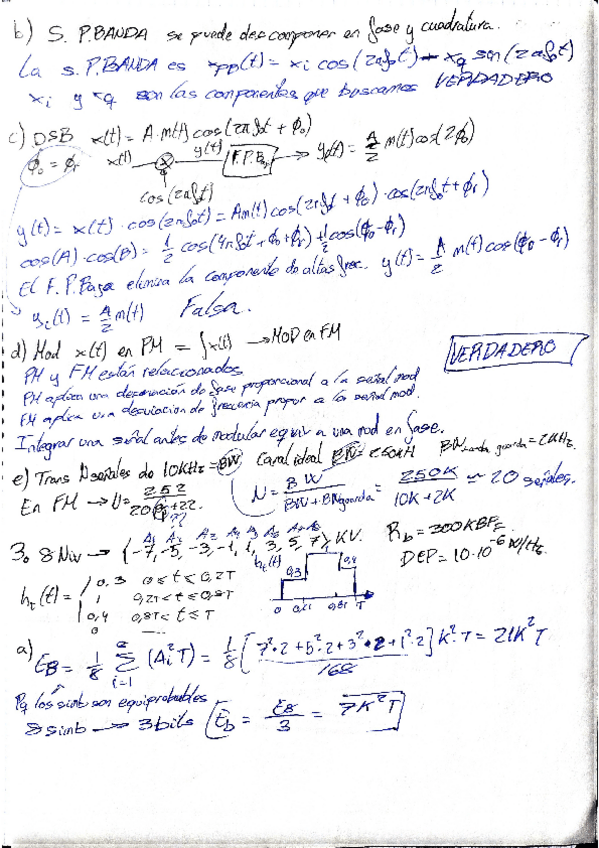 b) S. P.BANDA se puede descomponer en fase y cuadratura.
La S. P.BANDA es x_PB(t) = x_i cos(2πf₀t) - x_q sen(2πf₀t)
x_i y x_q son las componentes que buscamos VERDADERO
c) DSB x(t) = A·m(t) cos(2πf₀t + φ₀)
φ₀ = φ_r x(t) ⊗ y(t) F.P.Baj → y_d(t) = A/2 m(t) cos(2φ₀)
cos(2πf₀t)
y(t) = x(t)·cos(2πf₀t) = Am(t) cos(2πf₀t + φ₀)·cos(2πf₀t + φ_r)
cos(A)·cos(B) = 1/2 cos(4πf₀t + φ₀ + φ_r) + 1/2 cos(φ₀ - φ_r)
El F.P.Baja elimina la componente de altas frec. y(t) = A/2 m(t) cos(φ₀ - φ_r)
y_c(t) = A/2 m(t) Falsa.
d) Mod x(t) en PM = ∫x(t) → MOD en FM
VERDADERO
PM y FM están relacionados
PM aplica una desviación de fase proporcional a la señal mod
FM aplica una desviación de frecuencia propor a la señal mod.
Integrar una señal antes de modular equiv a una mod en fase.
e) Trans N señales de 10KHz = BW Canal ideal BW = 250kH BW banda guarda = 2KHz.
En FM → N = 252 / 20 +22. N = BW / BW + BWguarda = 250K / 10K + 2K ≃ 20 señales.
??
A₁ A₂ A₂ A₄ A₅ A₆ A₇ A₈
3. 8 Niv → {-7, -5, -3, -1, 1, 3, 5, 7} KV. R_b = 300KBPS
DEP = 10·10⁻⁶ W/Hz.
h_t(t) = 0,3 0 ≤ t ≤ 0,2T
1 0,2T < t ≤ 0,8T
0,4 0,8T < t ≤ T
0 ----
h_t(t) 0,3 0,4 0 0,2T 0,8T T
a) E_B = 1/8 Σ i=1 8 (A_i² T) = 1/8 [7²·2 + 5²·2 + 3²·2 + 1²·2] K²·T = 21K²T
168
Pq los simb son equiprobables
8 simb → 3 bits E_b = E_B / 3 = 7K²T